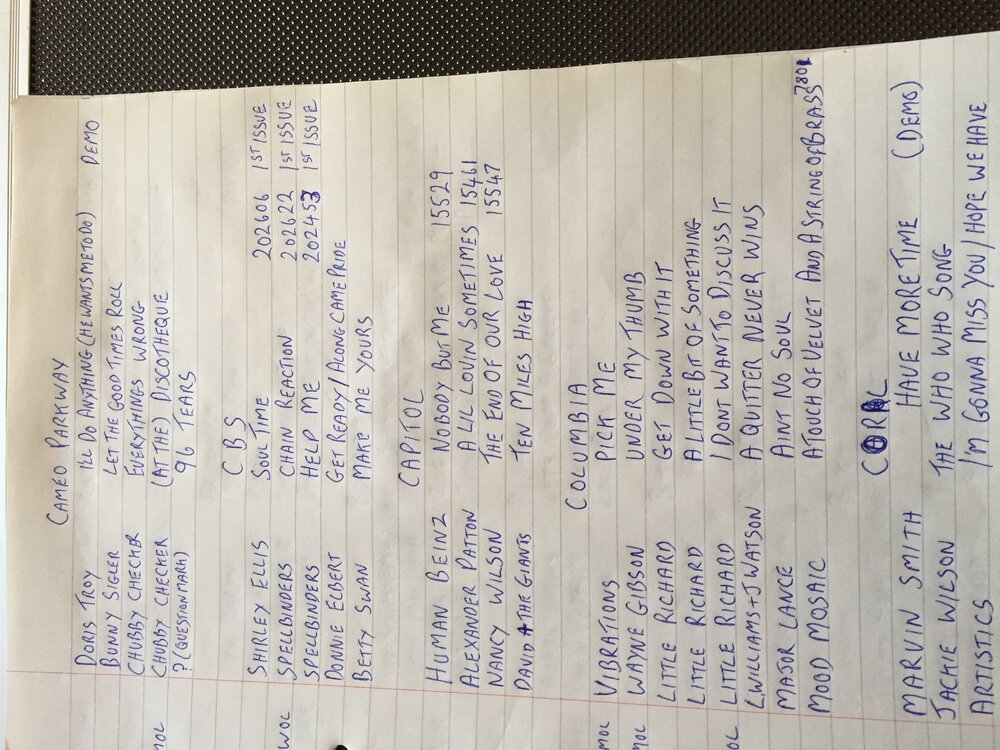 CAMEO PARKWAY
DORIS TROY I'LL DO ANYTHING (HE WANTS ME TO DO) DEMO
BUNNY SIGLER LET THE GOOD TIMES ROLL
CHUBBY CHECKER EVERYTHINGS WRONG
MOL CHUBBY CHECKER (AT THE) DISCOTHEQUE
? (QUESTION MARK) 96 TEARS
CBS
SHIRLEY ELLIS SOUL TIME 202606 1ST ISSUE
WOL SPELLBINDERS CHAIN REACTION 202622 1ST ISSUE
SPELLBINDERS HELP ME 202453 1ST ISSUE
DONNIE ELBERT GET READY/ALONG CAME PRIDE
BETTY SWAN MAKE ME YOURS
CAPITOL
HUMAN BEINZ NOBODY BUT ME 15529
ALEXANDER PATTON A LIL LOVIN SOMETIMES 15461
NANCY WILSON THE END OF OUR LOVE 15547
DAVID + THE GIANTS TEN MILES HIGH
COLUMBIA
MOL VIBRATIONS PICK ME
WAYNE GIBSON UNDER MY THUMB
MOL LITTLE RICHARD GET DOWN WITH IT
LITTLE RICHARD A LITTLE BIT OF SOMETHING
OL LITTLE RICHARD I DONT WANT TO DISCUSS IT
L.WILLIAMS + J WATSON A QUITTER NEVER WINS
MAJOR LANCE AINT NO SOUL
MOOD MOSAIC A TOUCH OF VELVET AND A STRING OF BRASS
MARVIN SMITH HAVE MORE TIME (DEMO)
JACKIE WILSON THE WHO WHO SONG
ARTISTICS I'M GONNA MISS YOU/HOPE WE HAVE